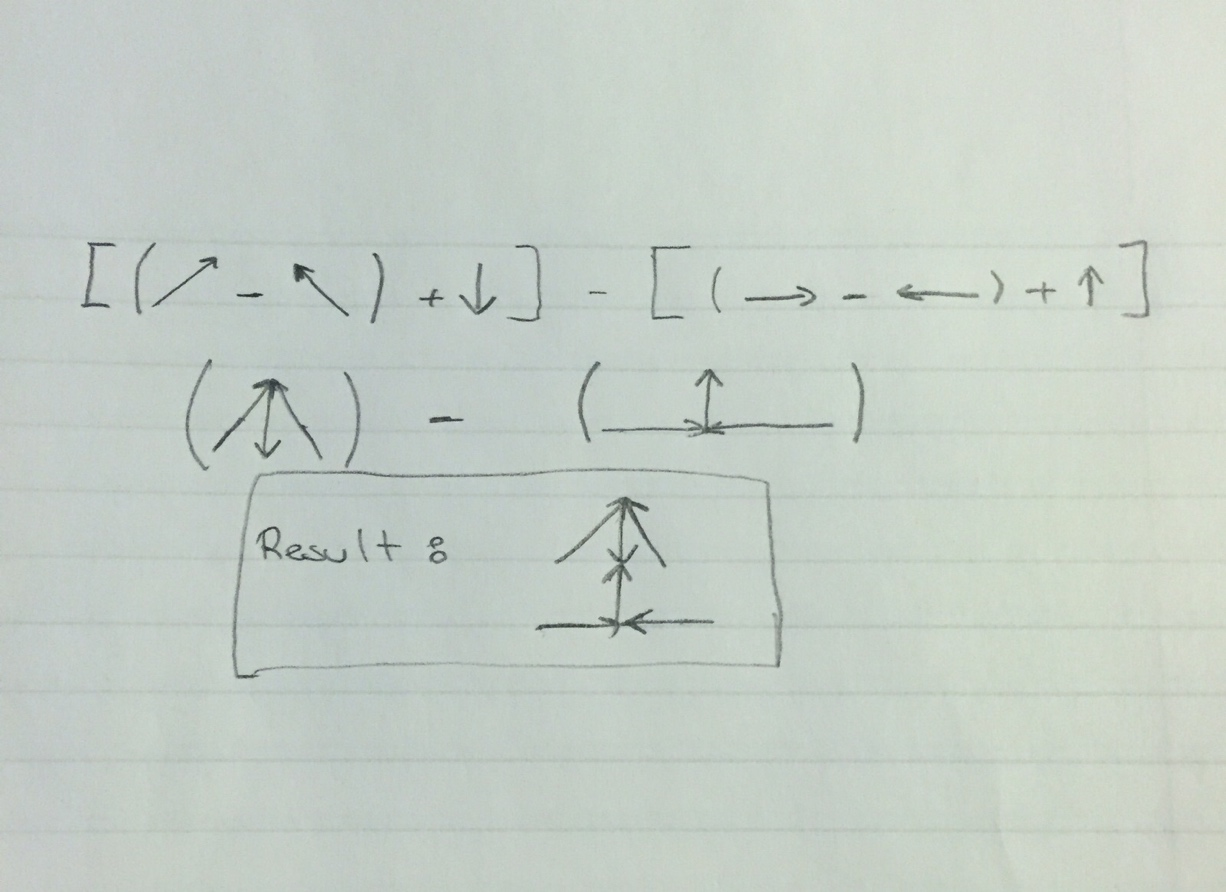 [(↗ - ↖) + ↓] - [(→ - ←) + ↑]
( ) - ( )
Result :